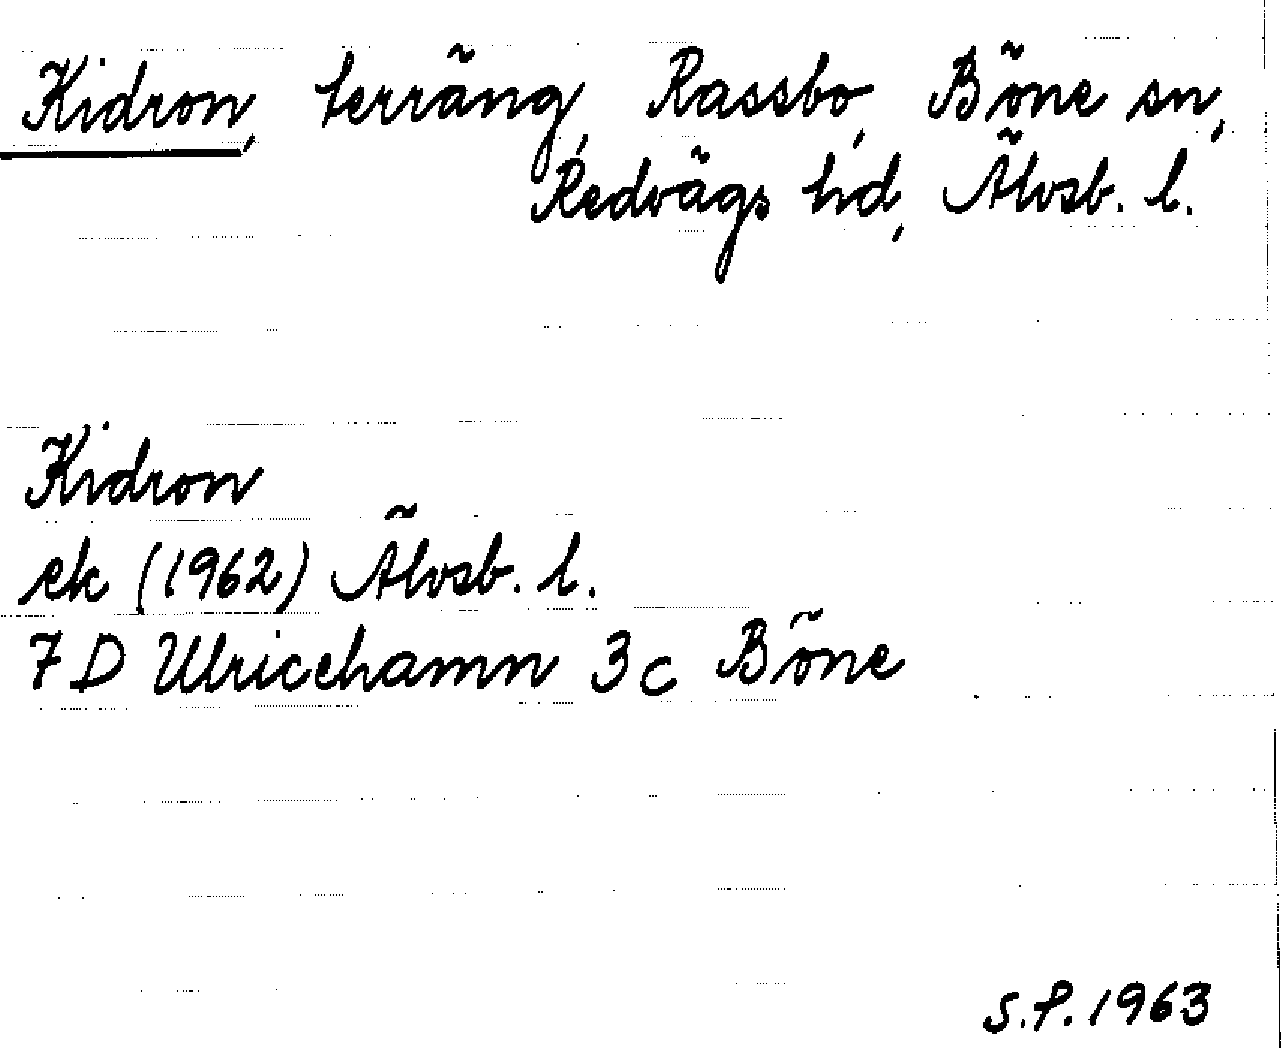 Kidron, terräng, Rassbo, Böne sn,
Redvägs hd, Älvsb. l.
Kidron
ek (1962) Älvsb. l.
7 D Ulricehamn 3 c Böne
S.P. 1963